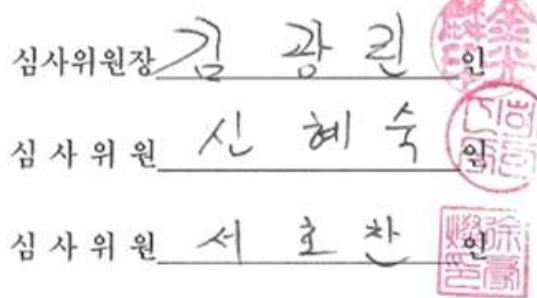 심사위원장 김 광 린 인
심 사 위 원 신 혜 숙 인
심 사 위 원 서 호 찬 인